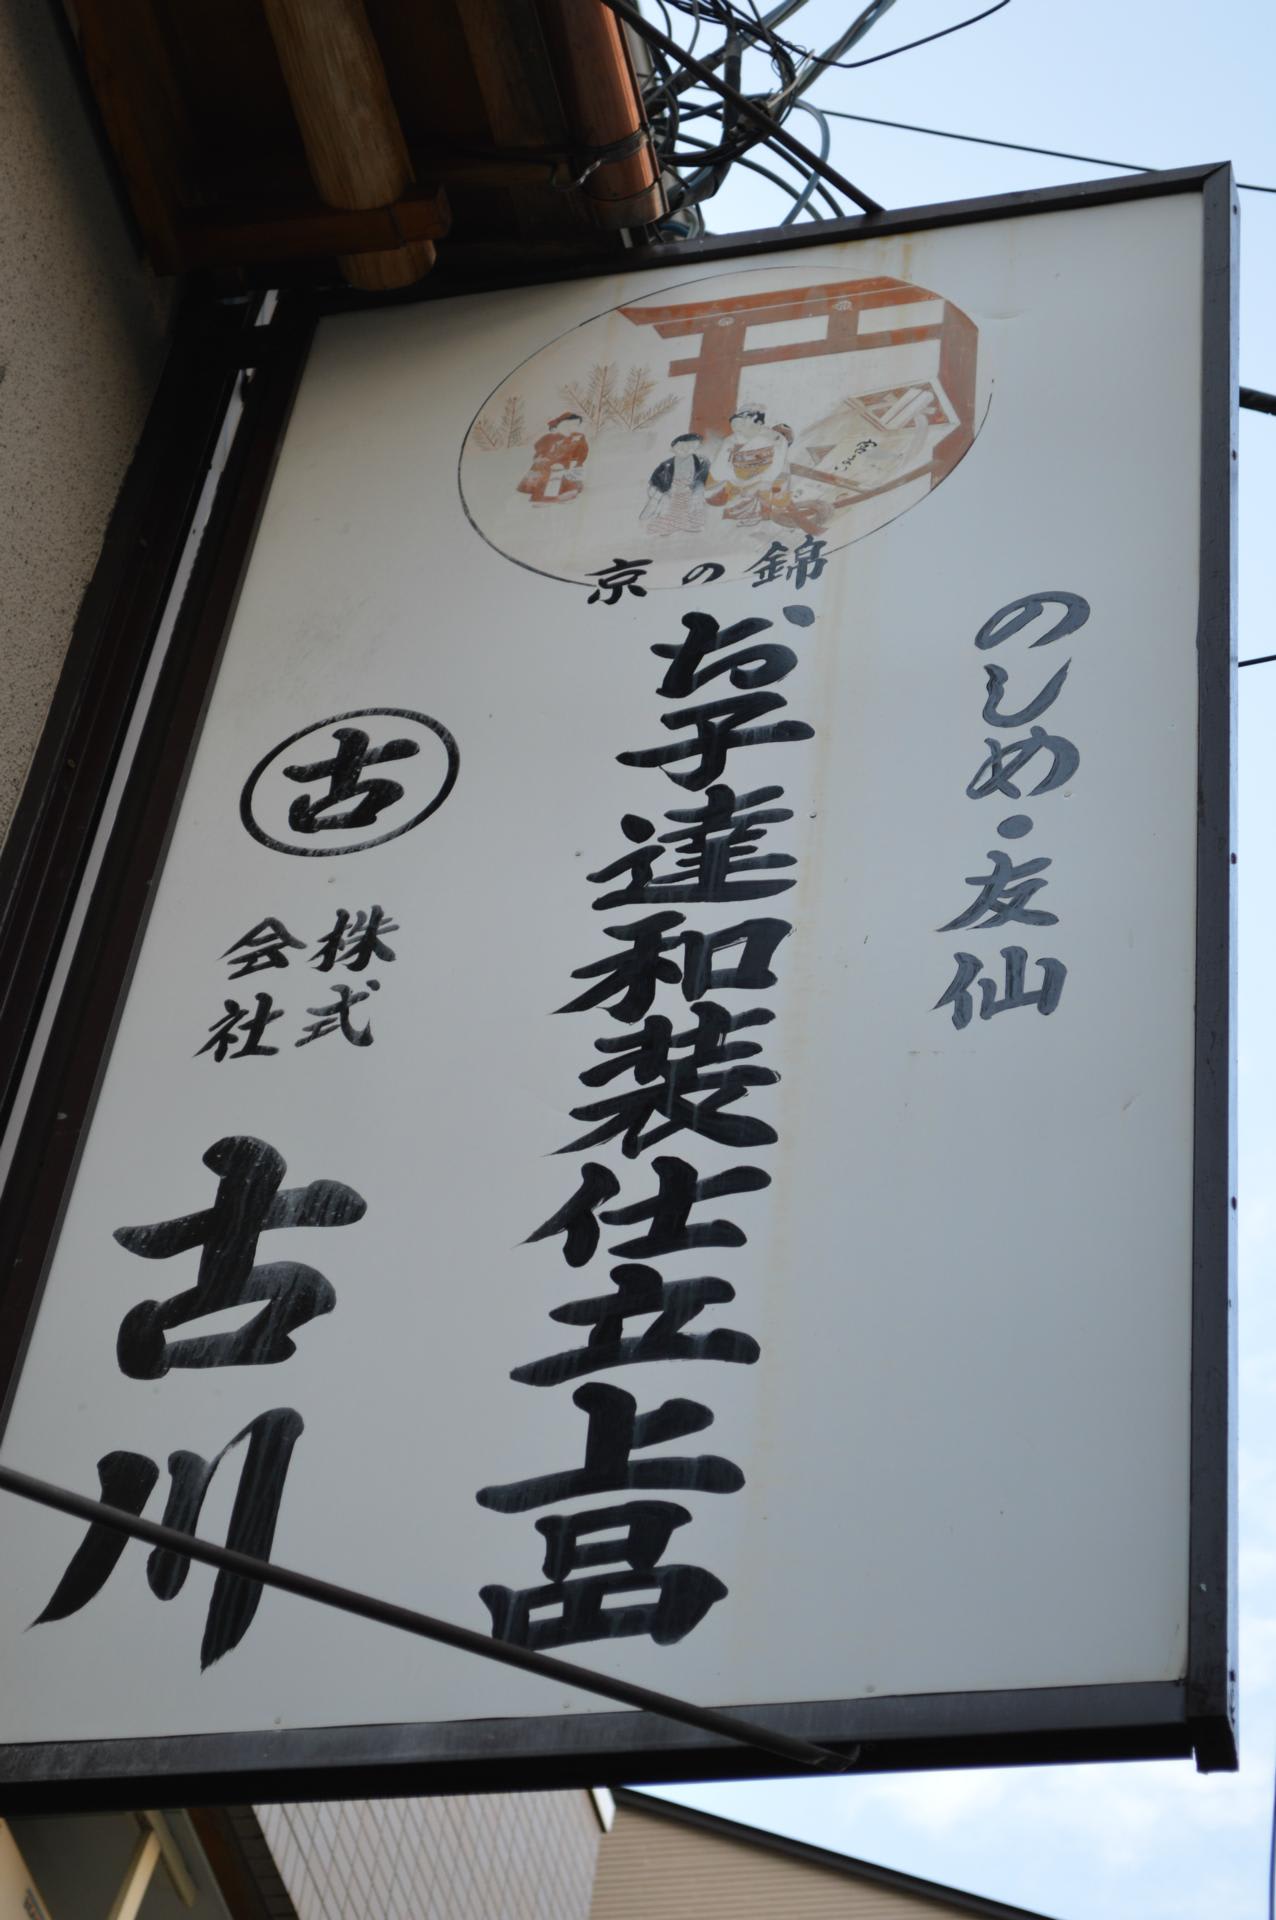 京の錦
のしめ・友仙
お子達和装仕立上品
古
株式
会社
古川